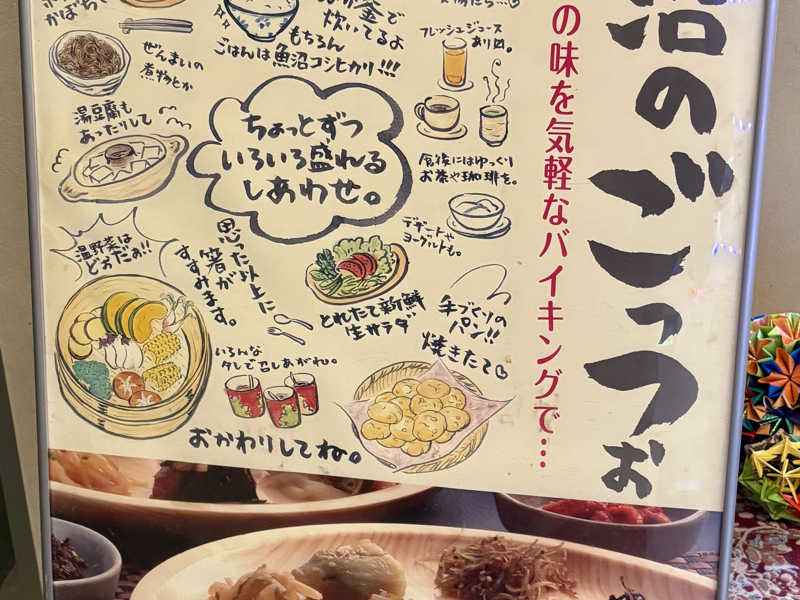 沼のごっつぉ
の味を気軽なバイキングで…
炊いてるよ
もちろん
ごはんは魚沼コシヒカリ!!!
ぜんまいの
煮物とか
湯豆腐も
あったりして
ちょっとずつ
いろいろ盛れる
しあわせ。
フレッシュジュース
あり〼。
食後にはゆっくり
お茶や珈琲を。
デザートや
ヨーグルトも。
温野菜は
どうだぁ!!
思った以上に
箸が
すすみます。
とれたて新鮮
生サラダ
手づくりの
パン!!
焼きたて
いろんな
タレで召しあがれ。
おかわりしてね。